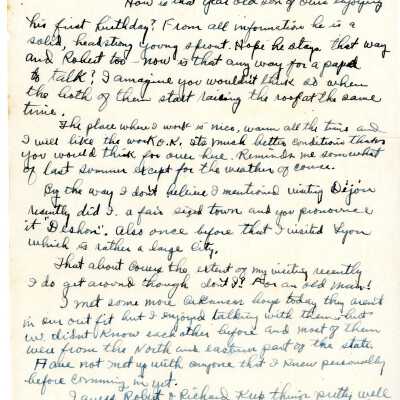 How is that year old son of ours enjoying
his first birthday? From all information he is a
solid, headstrong young sprout. Hope he stays that way
and Robert too - now is that any way for a papa
to talk? I amagine you wouldn't think so when
the both of them start raising the roof at the same
time.
The place where I work is nice, warm all the time and
I will like the work O.K. Its much better conditions than
you would think for over here. Reminds me somewhat
of last summer except for the weather of course.
By the way I don't believe I mentioned visiting Dijon
recently did I. a fair sized town and you pronounce
it "Deshon". Also once before that I visited Lyon
which is rather a large city.
That about covers the extent of my visiting recently
I do get around though don't I? For an old man!
I met some more Arkansas boys today they aren't
in our outfit but I enjoyed talking with them - but
we didnt know each other before and most of them
were from the North and eastern part of the state.
Have not met up with anyone that I knew personally
before comming in yet.
I guess Robert & Richard Keep things pretty well